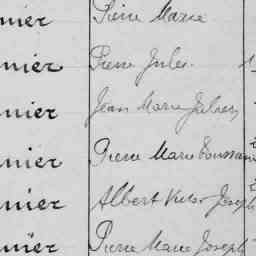 nier Pierre Marie
nier Pierre Jules
nier Jean Marie Julien
nier Pierre Marie Toussaint
nier Albert Victor Joseph
nier Pierre Marie Joseph